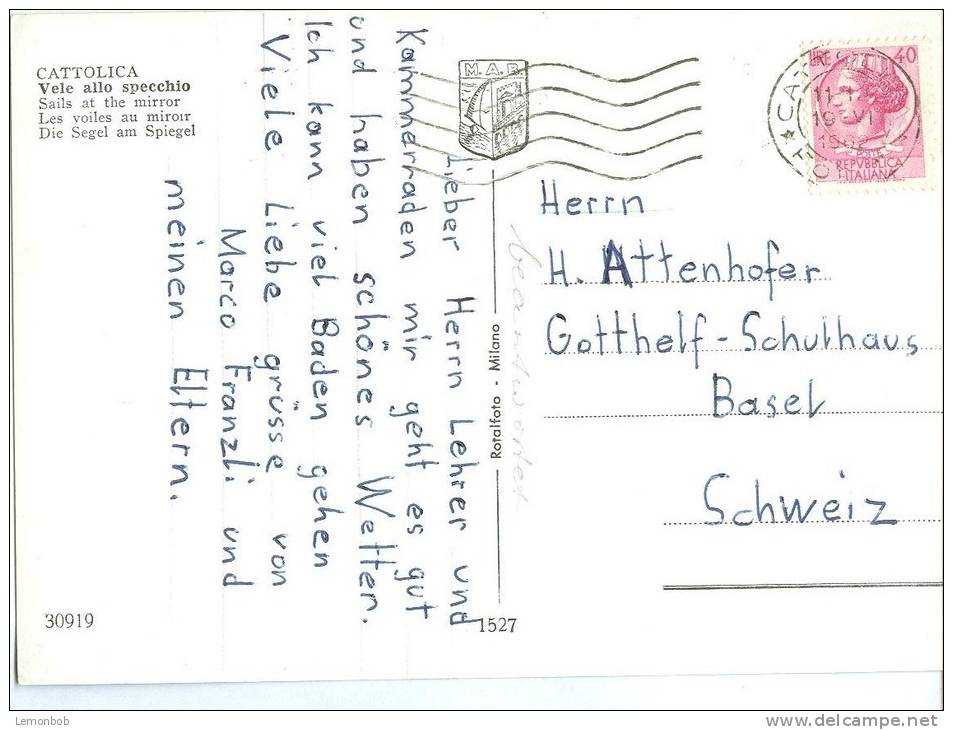 CATTOLICA
Vele allo specchio
Sails at the mirror
Les voiles au miroir
Die Segel am Spiegel
Lieber Herrn Lehrer und
Kammerraden mir geht es gut
und haben schönes Wetter.
Ich kann viel Baden gehen
Viele Liebe grüsse von
Marco Franzli und
meinen Eltern.
30919
1527
Rotalfoto - Milano
beantwortet
M.A.B.
LIRE 40
POSTE
REPVBBLICA
ITALIANA
Herrn
H. Attenhofer
Gotthelf-Schulhaus
Basel
Schweiz
Lemonbob
www.delcampe.net